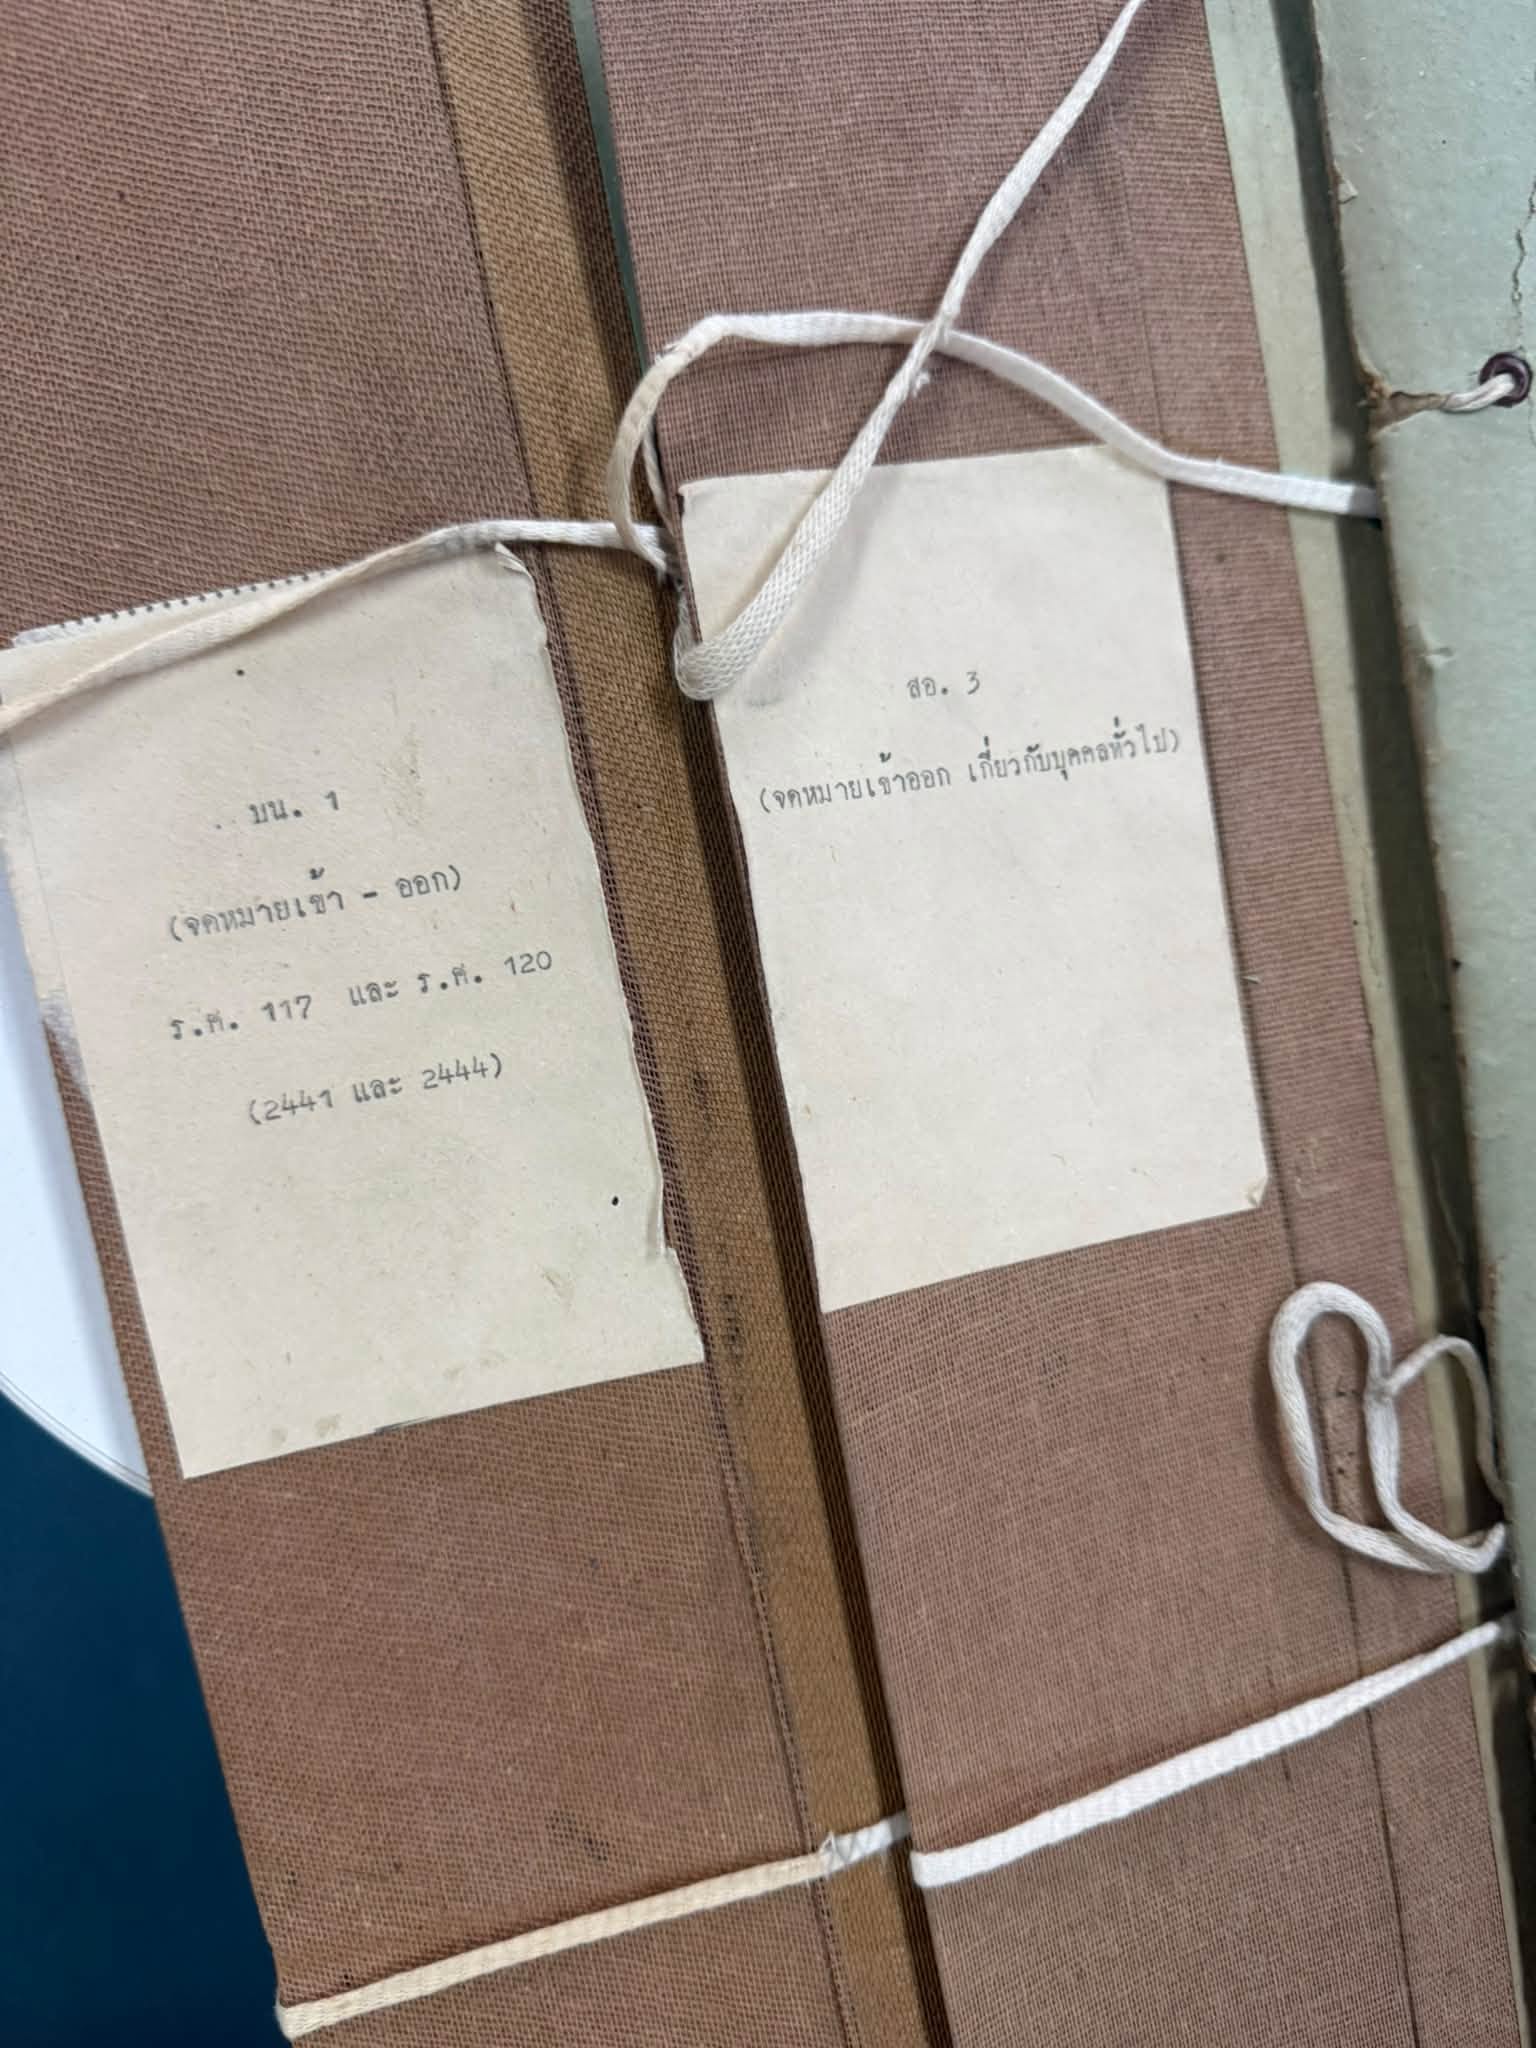 บน. 1
(จดหมายเข้า - ออก)
ร.ศ. 117 และ ร.ศ. 120
(2441 และ 2444)
สอ. 3
(จดหมายเข้าออก เกี่ยวกับบุคคลทั่วไป)